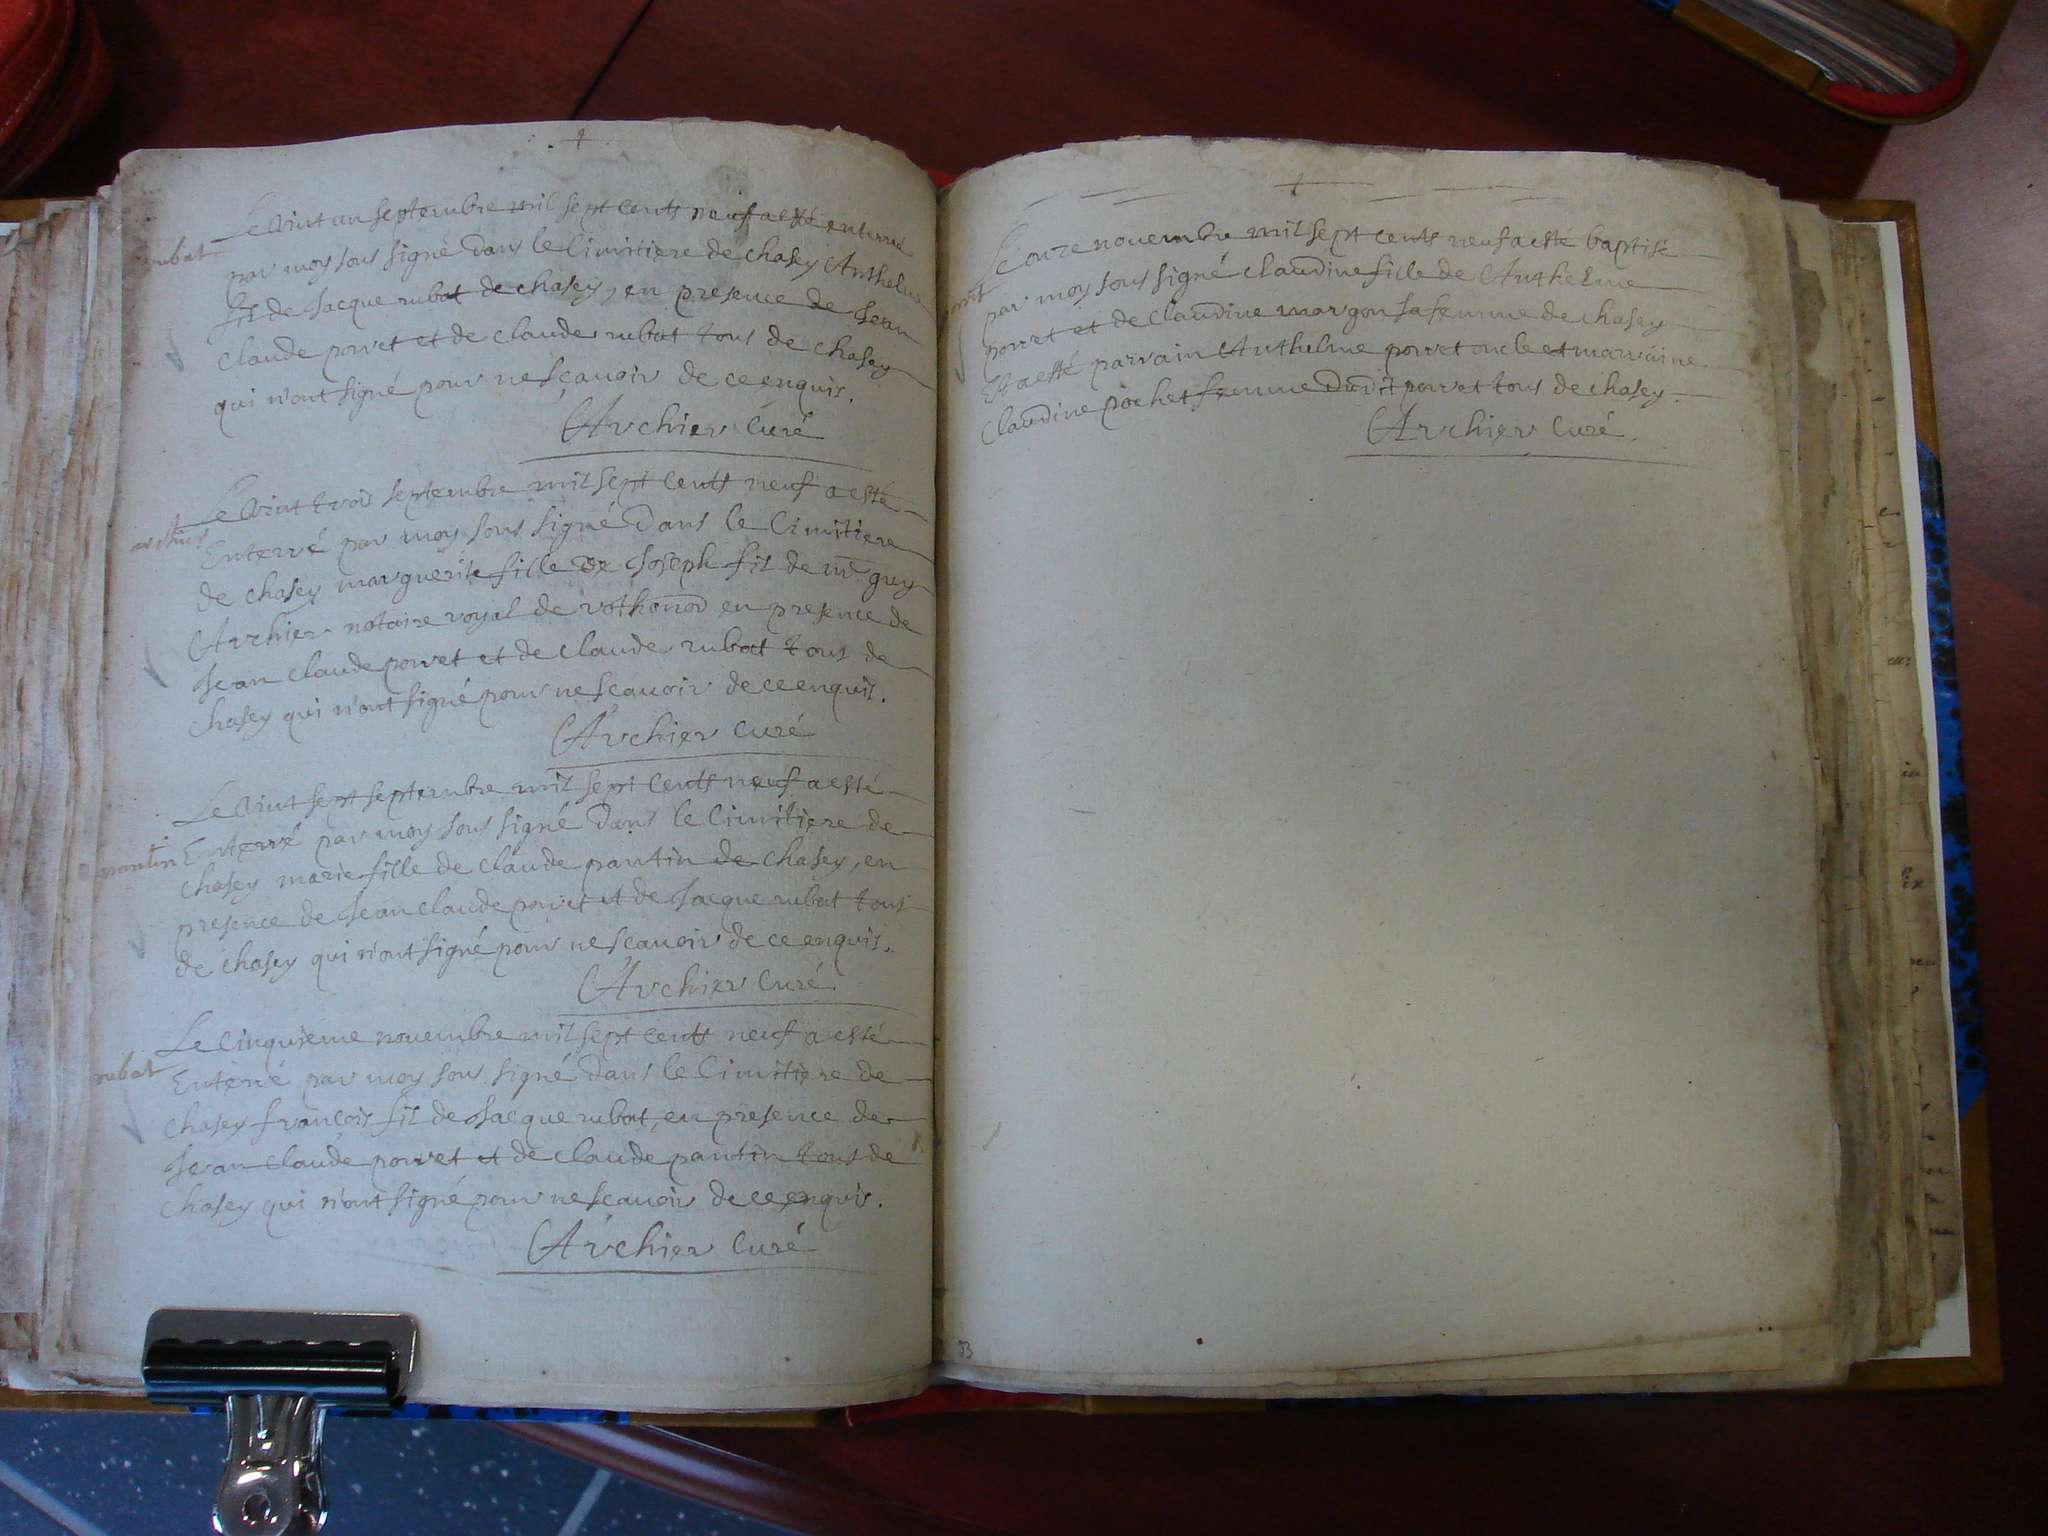 Le vint un septembre mil sept cents neuf a esté enterré
rubat
par moy sous signé dans le Cimitiere de chasey Anthelme
fil de Jacque rubat de chasey, en presence de Jean
claude porret et de claude rubat tous de chasey
qui n'ont signé pour ne scavoir de ce enquis.
Archier Curé
Le vint trois septembre mil sept cents neuf a esté
archier
Enterré par moy sous signé dans le Cimitiere
de chasey marguerite fille de Joseph fil de mr guy
Archier notaire royal de vothonod en presence de
Jean claude porret et de claude rubat tous de
chasey qui n'ont signé pour ne scavoir de ce enquis.
Archier Curé
Le vint sept septembre mil sept cents neuf a esté
pantin
Enterré par moy sous signé dans le Cimitiere de
chasey marie fille de claude pantin de chasey, en
presence de Jean claude porret et de Jacque rubat tous
de chasey qui n'ont signé pour ne scavoir de ce enquis.
Archier Curé
Le Cinquieme novembre mil sept cents neuf a esté
rubat
Enterré par moy sous signé dans le Cimitiere de
chasey françois fil de Jacque rubat, en presence de
Jean claude porret et de claude pantin tous de
chasey qui n'ont signé pour ne scavoir de ce enquis.
Archier Curé
Le onze novembre mil sept cents neuf a esté baptisé
par moy sous signé claudine fille de Anthelme
porret et de claudine margon sa femme de chasey
Et a esté parrain Anthelme porret oncle et marraine
claudine pochet femme dudit porret tous de chasey.
Archier Curé.
93